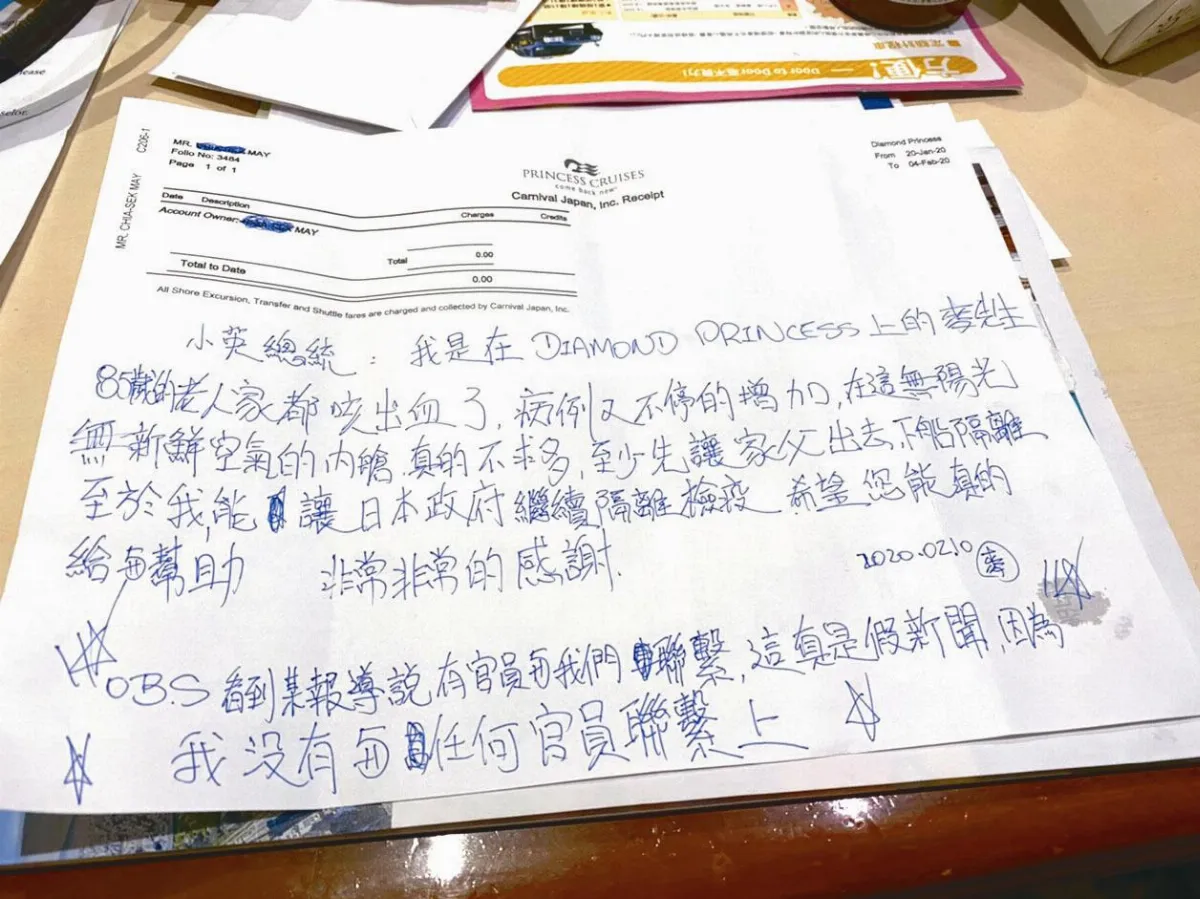 方便! — Door to Door
MR. MAY
Folio No: 3484
Page 1 of 1
C206-1
MR. CHIA-SEK MAY
PRINCESS CRUISES
come back new
Carnival Japan, Inc. Receipt
Diamond Princess
From 20-Jan-20
To 04-Feb-20
Date Description Charges Credits
Account Owner: MAY
Total 0.00
Total to Date 0.00
All Shore Excursion, Transfer and Shuttle fares are charged and collected by Carnival Japan, Inc.
小英總統: 我是在 DIAMOND PRINCESS 上的麥先生
85歲的老人家都咳出血了, 病例又不停的增加, 在這無陽光
無新鮮空氣的內艙, 真的不求多, 至少先讓家父出去, 下船隔離
至於我, 能 讓日本政府繼續隔離檢疫 希望您能真的
給与幫助 非常非常的感謝.
2020.0210 麥
O.B.S 看到某報導說有官員与我們 聯繫, 這真是假新聞, 因為
我没有与 任何官員聯繫上